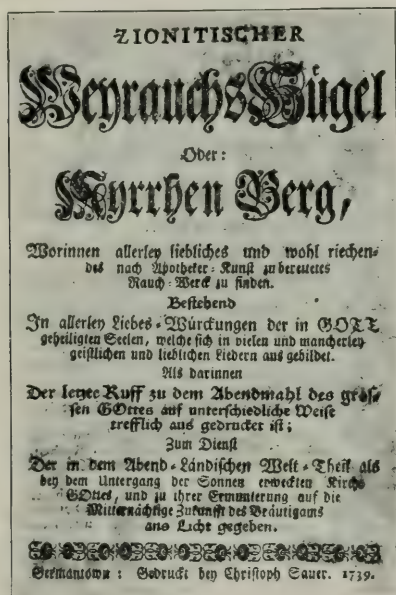 ZIONITISCHER
Weyrauchs Hügel
Oder:
Myrrhen Berg,
Worinnen allerley liebliches und wohl riechen-
des nach Apotheker-Kunst zu bereitetes
Rauch-Werck zu finden.
Bestehend
In allerley Liebes-Würckungen der in GOTT
geheiligten Seelen, welche sich in vielen und mancherley
geistlichen und lieblichen Liedern aus gebildet.
Als darinnen
Der letzte Ruff zu dem Abendmahl des gros-
sen GOttes auf unterschiedliche Weise
trefflich aus gedrucket ist;
Zum Dienst
Der in dem Abend-Ländischen Welt-Theil als
bey dem Untergang der Sonnen erweckten Kirche
GOttes, und zu ihrer Ermunterung auf die
Mitternächtige Zukunfft des Bräutigams
ans Licht gegeben.
Germantown: Gedruckt bey Christoph Sauer. 1739.